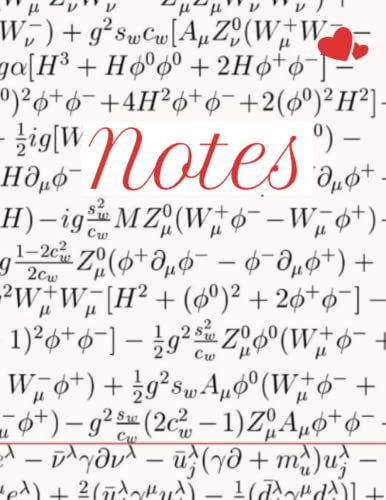 W_ν^-) + g^2 s_w c_w[A_μ Z_ν^0(W_μ^+ W_ν^-
gα[H^3 + Hφ^0φ^0 + 2Hφ^+φ^-] -
^0)^2φ^+φ^- + 4H^2φ^+φ^- + 2(φ^0)^2H^2] -
- \frac{1}{2}ig[W ^0) -
Notes
H∂_μφ^- ∂_μφ^+
H) - ig\frac{s_w^2}{c_w}MZ_μ^0(W_μ^+φ^- - W_μ^-φ^+)
g\frac{1-2c_w^2}{2c_w}Z_μ^0(φ^+∂_μφ^- - φ^-∂_μφ^+) +
^2W_μ^+W_μ^-[H^2 + (φ^0)^2 + 2φ^+φ^-] -
1)^2φ^+φ^-] - \frac{1}{2}g^2\frac{s_w^2}{c_w}Z_μ^0φ^0(W_μ^+φ^- +
W_μ^-φ^+) + \frac{1}{2}g^2s_wA_μφ^0(W_μ^+φ^- +
_μ^-φ^+) - g^2\frac{s_w}{c_w}(2c_w^2 - 1)Z_μ^0A_μφ^+φ^-
^λ - ν̄^λγ∂ν^λ - ū_j^λ(γ∂ + m_u^λ)u_j^λ -